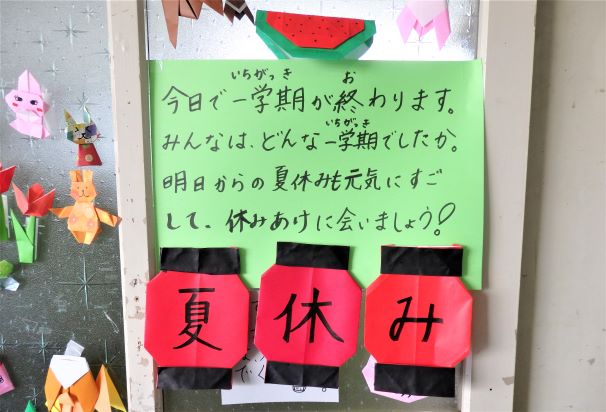 いちがっき お
今日で一学期が終わります。
いちがっき
みんなは、どんな一学期でしたか。
明日からの夏休みも元気にすご
して、休みあけに会いましょう!
夏休み